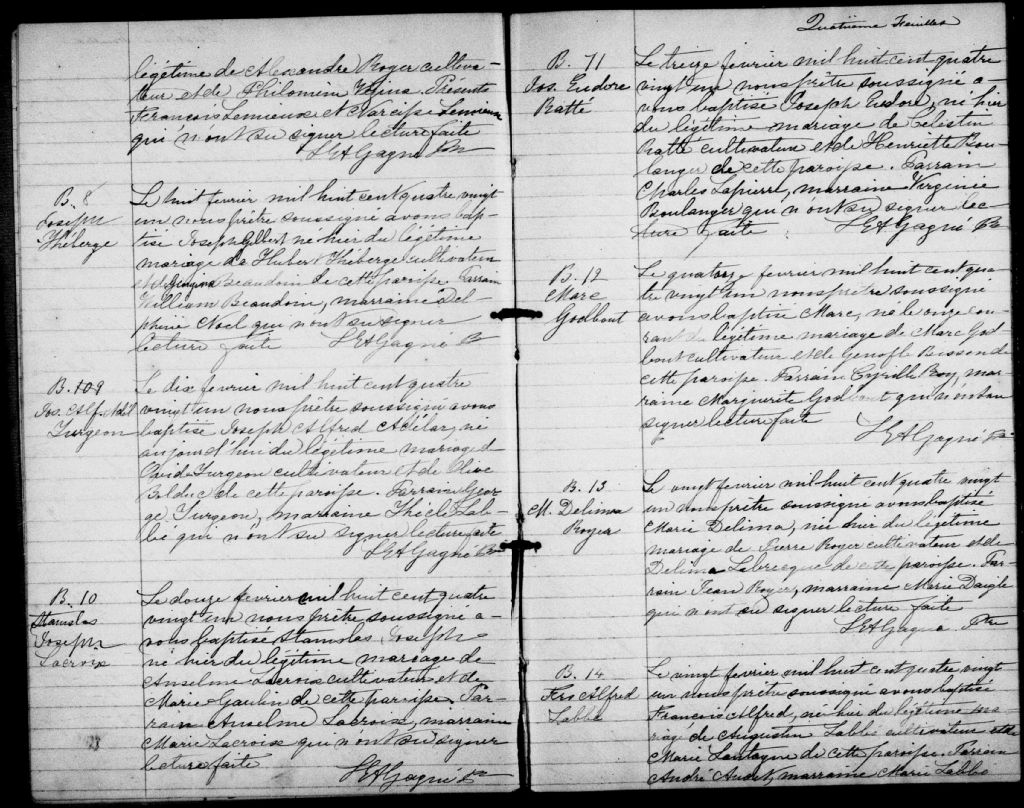 légitime de Alexandre Roger cultiva-
teur et de Philomèn Vézina. Présents
François Lemieux et Narcisse Lemieux
qui n'ont su signer lecture faite
LEAGagné Ptre
B. 8
Joseph
Théberge
Le huit fevrier mil huit cent quatre vingt
un nous prêtre soussigné avons bap-
tisé Joseph Gilbert né hier du légitime
mariage de Hubert Théberge cultivateur
et de Beaudoin de cette paroisse Parrain
William Beaudoin, marraine Del-
phine Noel qui n'ont su signer
lecture faite LEAGagné Ptre
B. 109
Jos. Alf. Adél
Turgeon
Le dix fevrier mil huit cent quatre
vingt un nous prêtre soussigné avons
baptisé Joseph Alfred Adélar, né
aujourd'hui du légitime mariage d
David Turgeon cultivateur et de Olive
Bolduc de cette paroisse. Parrain Geor-
ge Turgeon, marraine Thècle Lab-
bé qui n'ont su signer lecture faite
LEAGagné Ptre
B. 10
Stanislas
Joseph
Lacroix
Le douze fevrier mil huit cent quatre
vingt un nous prêtre soussigné a-
vons baptisé Stanislas Joseph
né hier du légitime mariage de
Anselme Lacroix cultivateur et de
Marie Goulin de cette paroisse. Par-
rain Anselme Lacroix, marraine
Marie Lacroix qui n'ont su signer
lecture faite
LEAGagné Ptre
Quatrième Feuillet
B. 71
Jos. Eudore
Ratté
Le treize fevrier mil huit cent quatre
vingt un nous prêtre soussigné a-
vons baptisé Joseph Eudore, né hier
du légitime mariage de Célestin
Ratté cultivateur et de Henriette Bou-
langer de cette paroisse. Parrain
Charles Lapierre, marraine Virginie
Boulanger qui n'ont su signer lec-
ture faite LEAGagné Ptre
B. 12
Marc
Godbout
Le quatorze fevrier mil huit cent qua-
tre vingt un nous prêtre soussigné
avons baptisé Marc, né le onze cou-
rant du légitime mariage de Marc God
bout cultivateur et de Genofle Bisson de
cette paroisse. Parrain Cyrille Roy, mar-
raine Marguerite Godbout qui n'ont su
signer lecture faite
LEAGagné Ptre
B. 13
M. Delima
Roger
Le vingt fevrier mil huit cent quatre vingt
un nous prêtre soussigné avons baptisé
Marie Delima, née hier du légitime
mariage de Pierre Roger cultivateur et de
Delima Labrecque de cette paroisse. Par-
rain Jean Roger, marraine Marie Daigle
qui n'ont su signer lecture faite
LEAGagné Ptre
B. 14
Frs Alfred
Labbé
Le vingt fevrier mil huit cent quatre vingt
un nous prêtre soussigné avons baptisé
François Alfred, né hier du légitime ma-
riage de Augustin Labbé cultivateur et de
Marie Lantagne de cette paroisse. Parrain
André Audet, marraine Marie Labbé